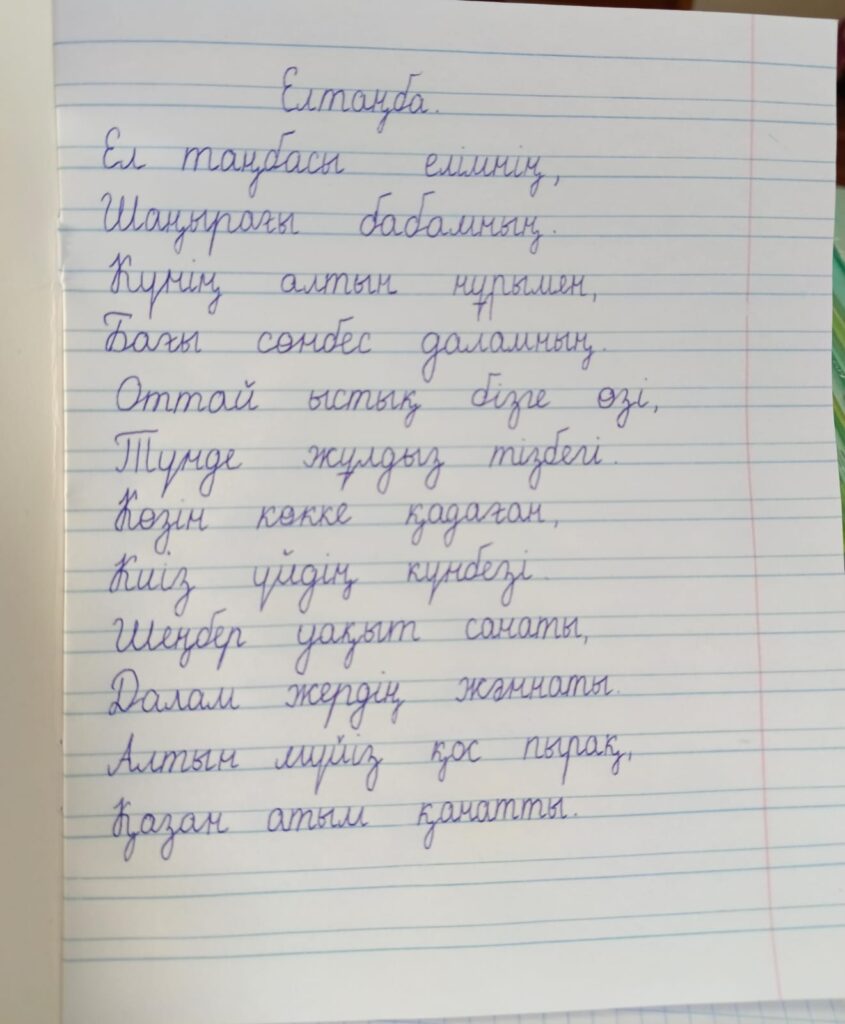 Елтаңба.
Ел таңбасы елімнің,
Шаңырағы бабамның.
Күнің алтын нұрымен,
Бағы сөнбес даламның.
Оттай ыстық бізге өзі,
Түнде жұлдыз тізбегі.
Көзін көкке қадаған,
Киіз үйдің күнбезі.
Шеңбер уақыт санаты,
Далам жердің жәннаты.
Алтын мүйіз қос пырақ,
Қазан атым қанатты.